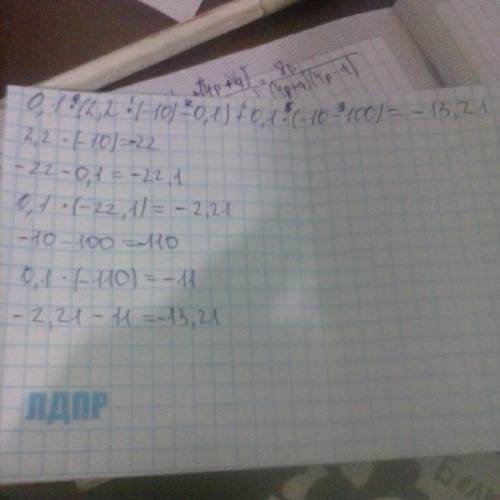 4p+q = 8p
(4p+q)(4p-q)
0,1·(2,2·(-10)-0,1)+0,1·(-10-100)=-13,21
2,2·(-10)=-22
-22-0,1=-22,1
0,1·(-22,1)=-2,21
-10-100=-110
0,1·(-110)=-11
-2,21-11=-13,21
ЛДПР